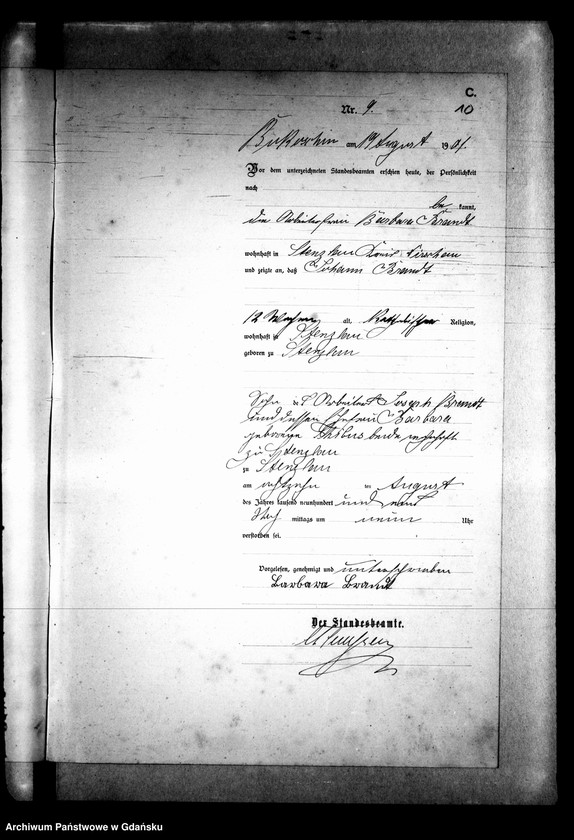 C.
Nr. 9. 10
Bukoschin am 19 August 1901.
Vor dem unterzeichneten Standesbeamten erschien heute, der Persönlichkeit
nach
be kannt,
die Arbeiterfrau Barbara Brandt
wohnhaft in Stenzlau Kreis Dirschau
und zeigte an, daß Johann Brandt
12 Wochen alt, katholischer Religion,
wohnhaft in Stenzlau
geboren zu Stenzlau
Sohn des Arbeiters Joseph Brandt
und dessen Ehefrau Barbara
geborene beide wohnhaft
zu Stenzlau
zu Stenzlau
am achtzehn ten August
des Jahres tausend neunhundert und eins
Nach mittags um neun Uhr
verstorben sei.
Vorgelesen, genehmigt und unterschrieben
Barbara Brandt
Der Standesbeamte.
Archiwum Państwowe w Gdańsku